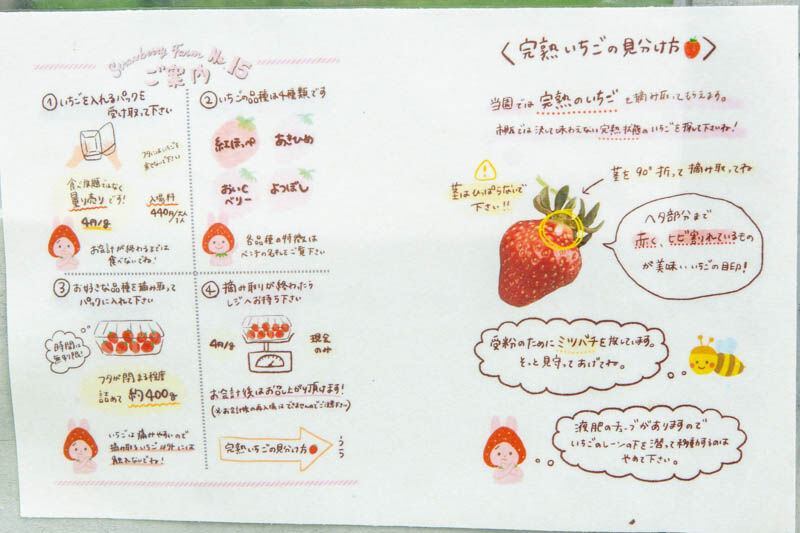 Strawberry Farm No.15
ご案内
① いちごを入れるパックを
受け取って下さい
食べ放題ではなく
量り売りです!
4円/g
入場料
440円/大人
1人
お会計が終わるまでは
食べないでね!
② いちごの品種は4種類です
紅ほっぺ
あきひめ
おいC
ベリー
よつぼし
各品種の特徴は
ベンチの名札をご覧下さい
③ お好きな品種を摘み取って
パックに入れて下さい
時間は
無制限!
フタが閉まる程度
詰めて 約400g
いちごは痛みやすいので
摘み取るいちご以外には
触れないでね!
④ 摘み取りが終わったら
レジへお持ち下さい
4円/g
現金
のみ
お会計後はお召し上がり頂けます!
(※お会計後の再入場はできませんのでご注意下さい)
完熟いちごの見分け方
〈完熟いちごの見分け方〉
当園では 完熟のいちご を摘み取ってもらえます。
市販では決して味わえない完熟状態のいちごを探して下さいね!
茎はひっぱらないで
下さい!!
茎を90°折って摘み取ってね
ヘタ部分まで
赤く、ひび割れているもの
が美味しいいちごの目印!
受粉のためにミツバチを放しています。
そっと見守ってあげてね。
液肥のチューブがありますので
いちごのレーンの下を潜って移動するのは
やめて下さい。